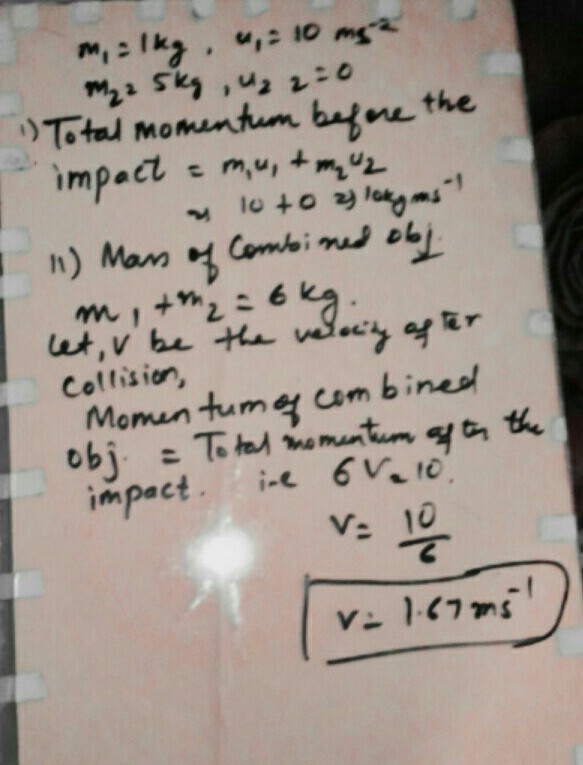 m₁ = 1kg , u₁ = 10 ms⁻²
m₂ = 5kg , u₂ = 0
i) Total momentum before the
impact = m₁u₁ + m₂u₂
= 10 + 0 = 10kg ms⁻¹
ii) Mass of Combined obj.
m₁ + m₂ = 6 kg.
Let, V be the velocity after
Collision,
Momentum of combined
obj. = Total momentum after the
impact. i-e 6V = 10.
V = 10/6
V = 1.67 ms⁻¹